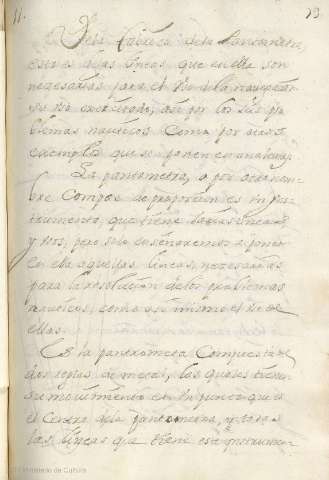 11.
19
De la fabrica de la Pantometra,
esto es de las lineas, que en ella son
necesarias para el uso de la navegacion
por los sus pro
blemas nauticos Como por otros
exemplos que se ponen en
La pantometra, o por otro nom
bre Compas de proporcion es ins
trumento, que tiene varias lineas
y usos, pero solo enseñaremos a poner
en ella aquellas lineas, necesarias
para la resolucion de los problemas
nauticos, como asi mismo el uso de
ellas.
Es la pantometra Compuesta de
dos reglas de metal, las quales tienen
su movimiento en un punto que es
el Centro de la pantometra, y todas
las lineas que tiene este instrumen
Ministerio de Cultura